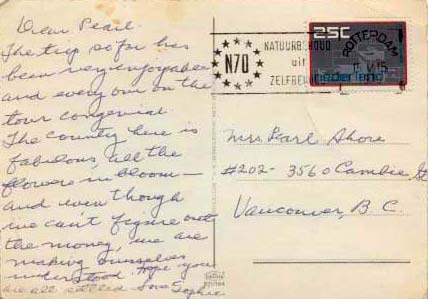 Dear Pearl.
The trip so far has
been very enjoyable
and every one on the
tour congenial.
The country here is
fabulous, all the
flowers in bloom—
and even though
we can't figure out
the money, we are
making ourselves
understood. Hope you
are all settled Love Sophie
N70
NATUURBEHOUD
uit
ZELFBEHOUD
25C
ROTTERDAM
nederland
Mrs. Pearl Shore
#202- 3560 Cambie St
Vancouver, B.C.